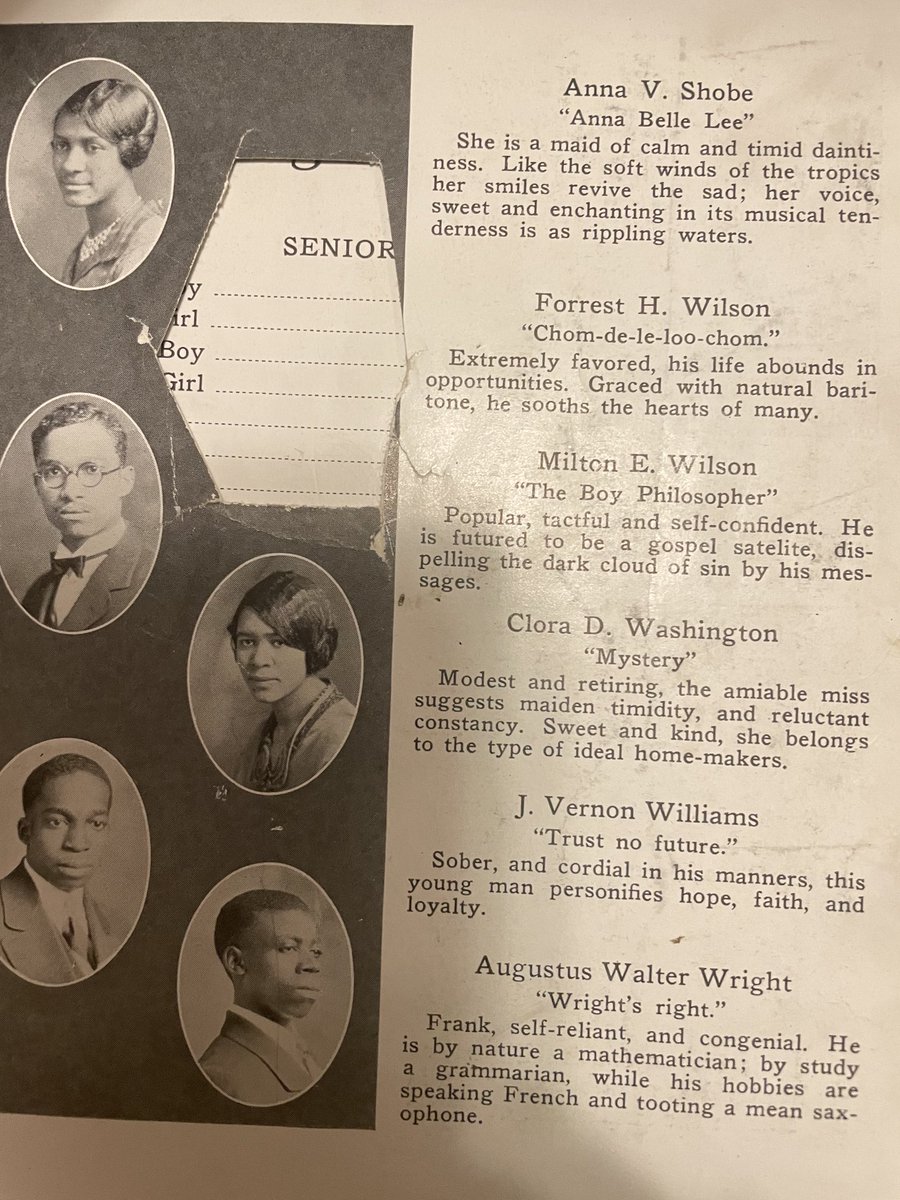 SENIOR
y
irl
Boy
Girl
Anna V. Shobe
“Anna Belle Lee”
She is a maid of calm and timid dainti-
ness. Like the soft winds of the tropics
her smiles revive the sad; her voice,
sweet and enchanting in its musical ten-
derness is as rippling waters.
Forrest H. Wilson
“Chom-de-le-loo-chom.”
Extremely favored, his life abounds in
opportunities. Graced with natural bari-
tone, he sooths the hearts of many.
Milton E. Wilson
“The Boy Philosopher”
Popular, tactful and self-confident. He
is futured to be a gospel satelite, dis-
pelling the dark cloud of sin by his mes-
sages.
Clora D. Washington
“Mystery”
Modest and retiring, the amiable miss
suggests maiden timidity, and reluctant
constancy. Sweet and kind, she belongs
to the type of ideal home-makers.
J. Vernon Williams
“Trust no future.”
Sober, and cordial in his manners, this
young man personifies hope, faith, and
loyalty.
Augustus Walter Wright
“Wright’s right.”
Frank, self-reliant, and congenial. He
is by nature a mathematician; by study
a grammarian, while his hobbies are
speaking French and tooting a mean sax-
ophone.